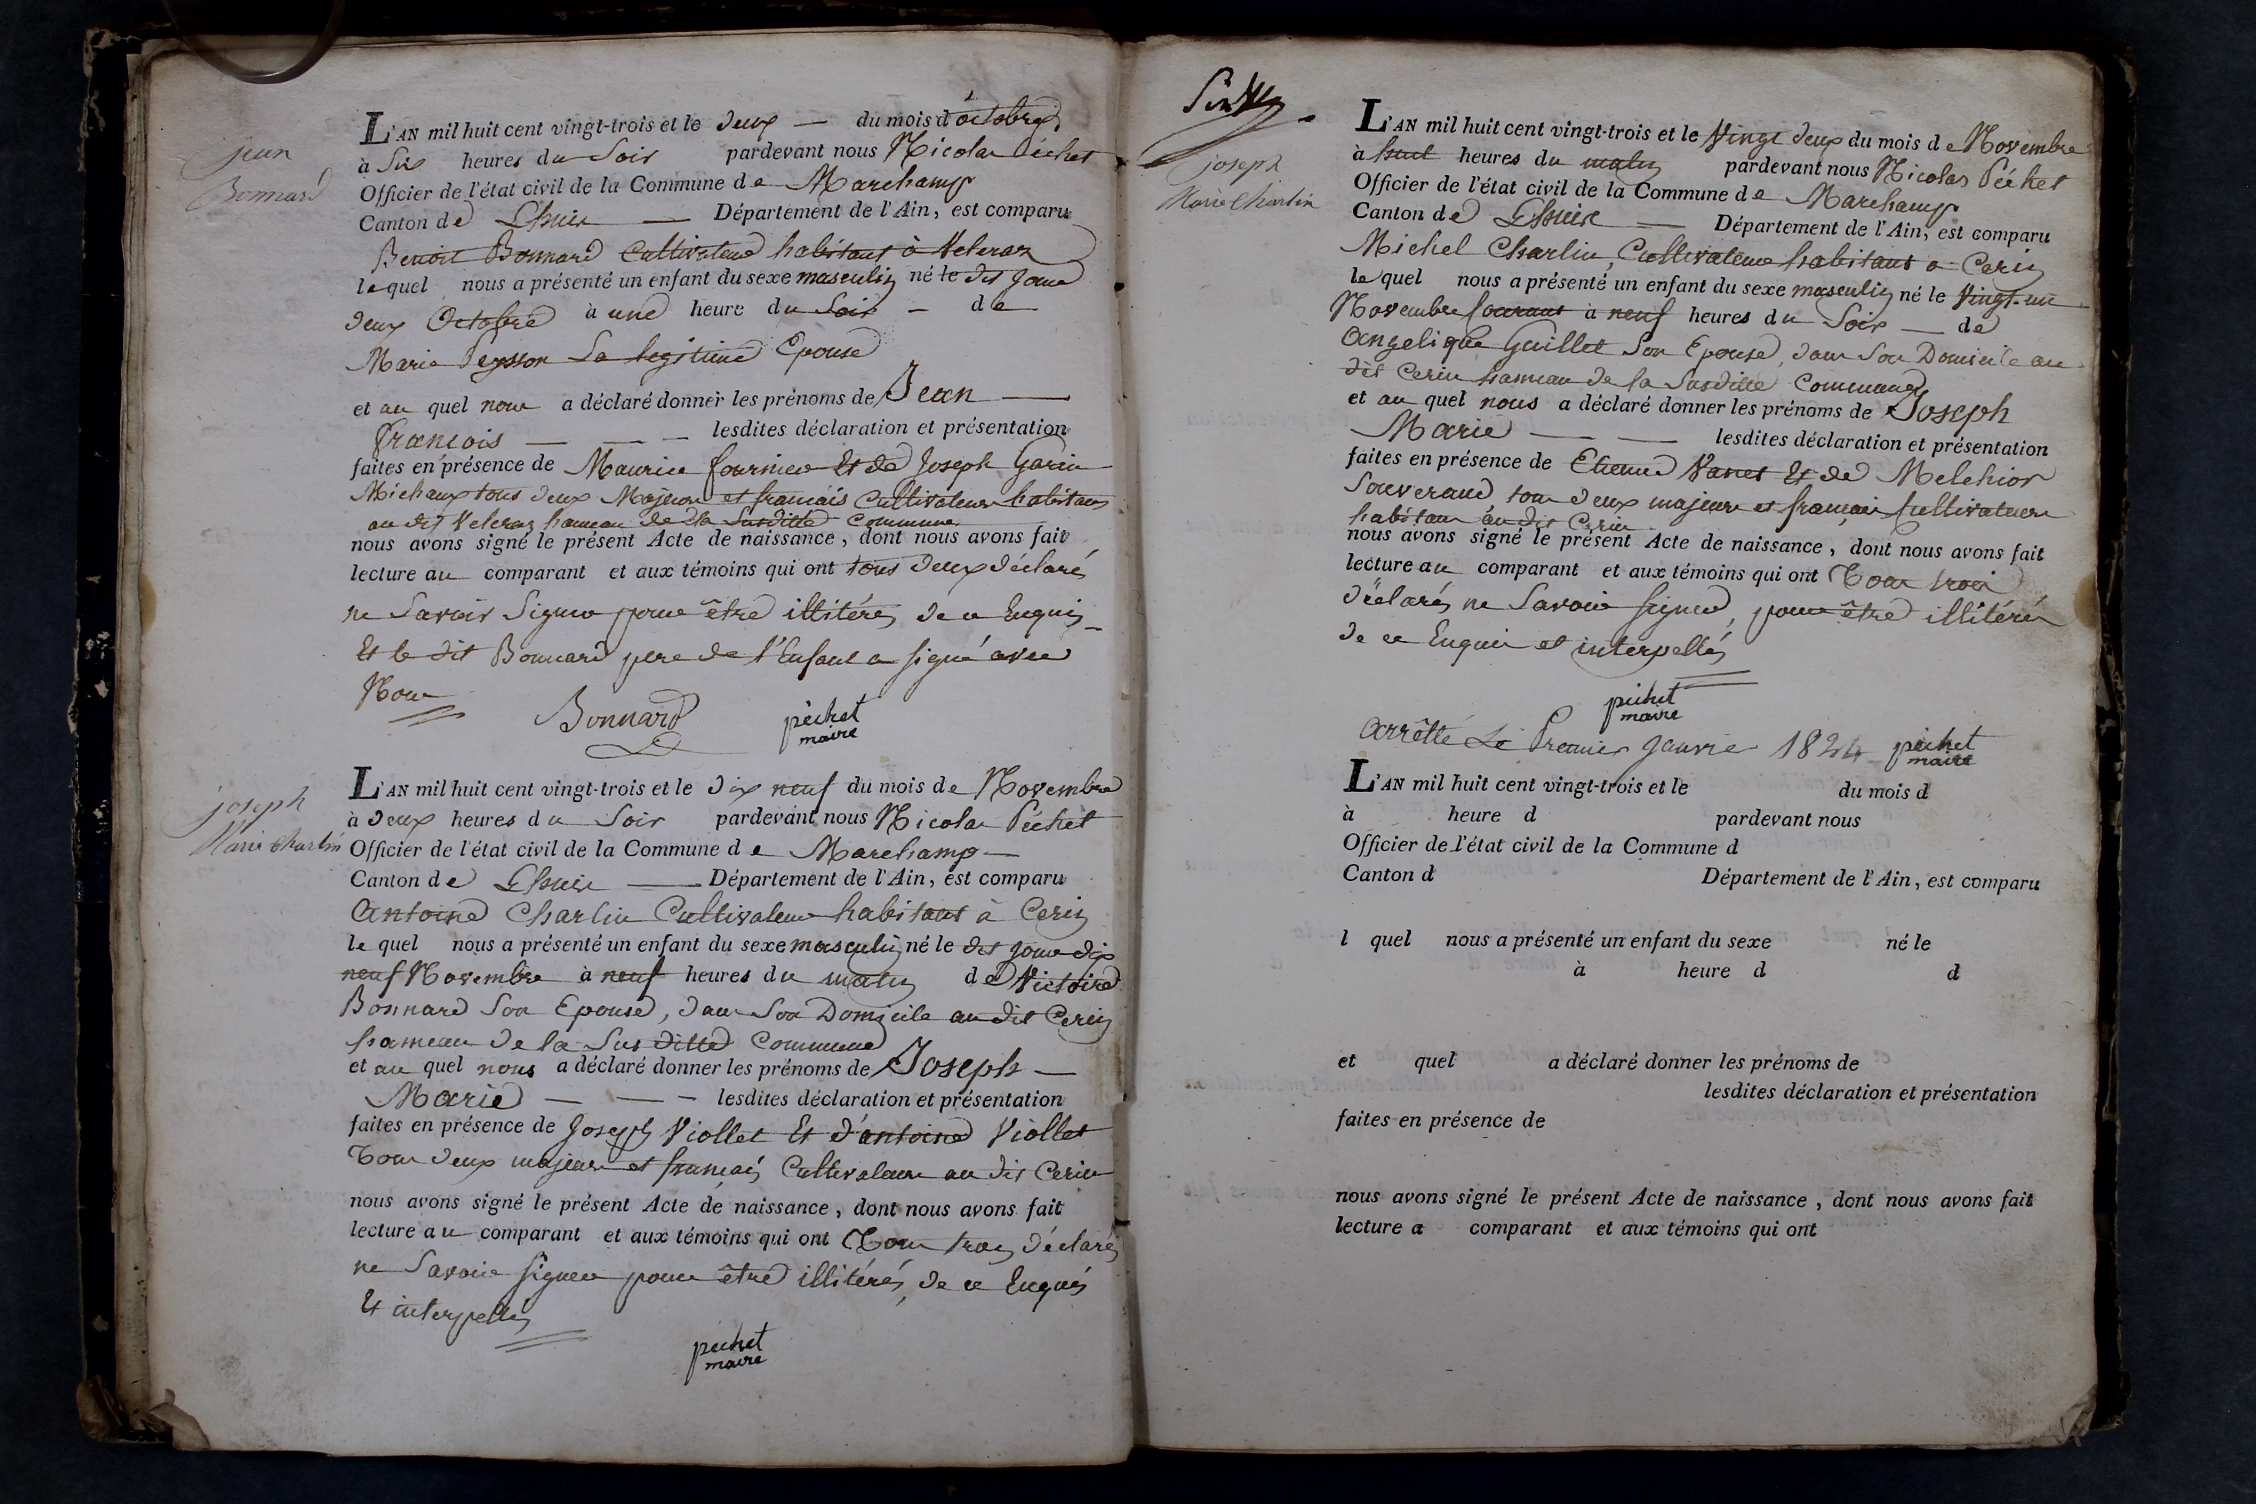 jean
Bonnard
L'AN mil huit cent vingt-trois et le deux — du mois d'octobre,
à Six heures du Soir pardevant nous Nicolas Péchet
Officier de l'état civil de la Commune de Marchamp
Canton de Lhuis — Département de l'Ain, est comparu
Benoit Bonnard Cultivateur habitant à Veleraz
le quel nous a présenté un enfant du sexe masculin né le dit jour
deux Octobre à une heure du Soir — de
Marie Peysson Sa legitime Epouse
et au quel nous a déclaré donner les prénoms de Jean —
francois — — — lesdites déclaration et présentation
faites en présence de Maurice fournier Et de Joseph Garin
Michaux tous deux Majeurs et français Cultivateurs habitans
au dit Veleraz hameau de la Susditte Commune
nous avons signé le présent Acte de naissance, dont nous avons fait
lecture au comparant et aux témoins qui ont tous deux déclarés
ne Savoir Signer pour être illitérés de ce Enquis
Et le dit Bonnard pere de l'Enfant a signé avec
Nous
Bonnard péchet
maire
joseph
Marie Charlin
L'AN mil huit cent vingt-trois et le dix neuf du mois de Novembre
à deux heures du Soir pardevant nous Nicolas Péchet
Officier de l'état civil de la Commune de Marchamp —
Canton de Lhuis — Département de l'Ain, est comparu
Antoine Charlin Cultivateur habitant à Cerin
le quel nous a présenté un enfant du sexe masculin né le dit jour dix
neuf Novembre à neuf heures du matin de Victoire
Bonnard Son Epouse, dans Son Domicile au dit Cerin
hameau de la Sus ditte Commune
et au quel nous a déclaré donner les prénoms de Joseph —
Marie — — — lesdites déclaration et présentation
faites en présence de Joseph Viollet Et d'antoine Viollet
Tous deux majeurs et français Cultivateurs au dit Cerin
nous avons signé le présent Acte de naissance, dont nous avons fait
lecture au comparant et aux témoins qui ont Tous trois déclarés
ne Savoir signer pour être illitérés, de ce Enquis
Et interpellés
péchet
maire
joseph
Marie Charlin
L'AN mil huit cent vingt-trois et le Vingt deux du mois de Novembre
à huit heures du matin pardevant nous Nicolas Péchet
Officier de l'état civil de la Commune de Marchamp
Canton de Lhuis — Département de l'Ain, est comparu
Michel Charlin, Cultivateur habitant a Cerin
le quel nous a présenté un enfant du sexe masculin né le Vingt-un
Novembre Courant à neuf heures du Soir — de
Angelique Guillet Son Epouse, dans Son Domicile au
dit Cerin hameau de la Susditte Commune
et au quel nous a déclaré donner les prénoms de Joseph
Marie — — lesdites déclaration et présentation
faites en présence de Etienne Et de Melchior
Souverand tous deux majeurs et français Cultivateurs
habitans au dit Cerin
nous avons signé le présent Acte de naissance, dont nous avons fait
lecture au comparant et aux témoins qui ont Tous trois
déclarés ne Savoir signer, pour être illitérés
de ce Enquis et interpellés
péchet
maire
Arrêtté Le Premier Janvier 1824 péchet
maire
L'AN mil huit cent vingt-trois et le du mois d
à heure d pardevant nous
Officier de l'état civil de la Commune d
Canton d Département de l'Ain, est comparu
l quel nous a présenté un enfant du sexe né le
à heure d d
et quel a déclaré donner les prénoms de
lesdites déclaration et présentation
faites en présence de
nous avons signé le présent Acte de naissance, dont nous avons fait
lecture a comparant et aux témoins qui ont